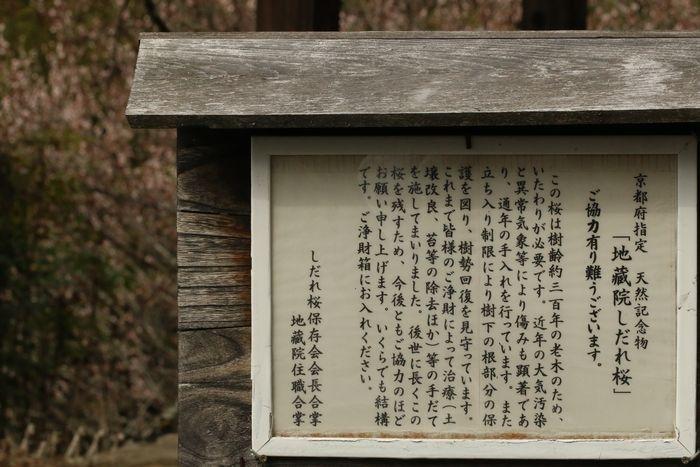 京都府指定　天然記念物
「地蔵院しだれ桜」
ご協力有り難うございます。
この桜は樹齢約三百年の老木のため、
いたわりが必要です。近年の大気汚染
と異常気象等により傷みも顕著であ
り、通年の手入れを行っています。また
立ち入り制限により樹下の根部分の保
護を図り、樹勢回復を見守っています。
これまで皆様のご浄財によって治療（土
壌改良、苔等の除去ほか）等の手だて
を施してまいりました。後世に長くこの
桜を残すため、今後ともご協力のほど
お願い申し上げます。いくらでも結構
です。ご浄財箱にお入れください。
しだれ桜保存会会長合掌
地蔵院住職合掌